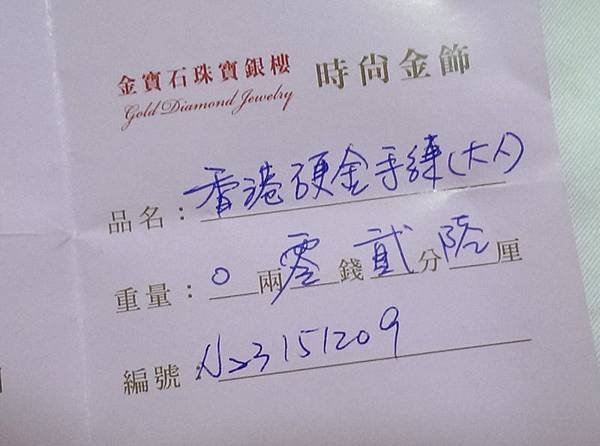 金寶石珠寶銀樓 時尚金飾
Gold Diamond Jewelry
品名：香港硬金手鍊(大人)
重量：0兩零錢貳分陸厘
編號：N23151209